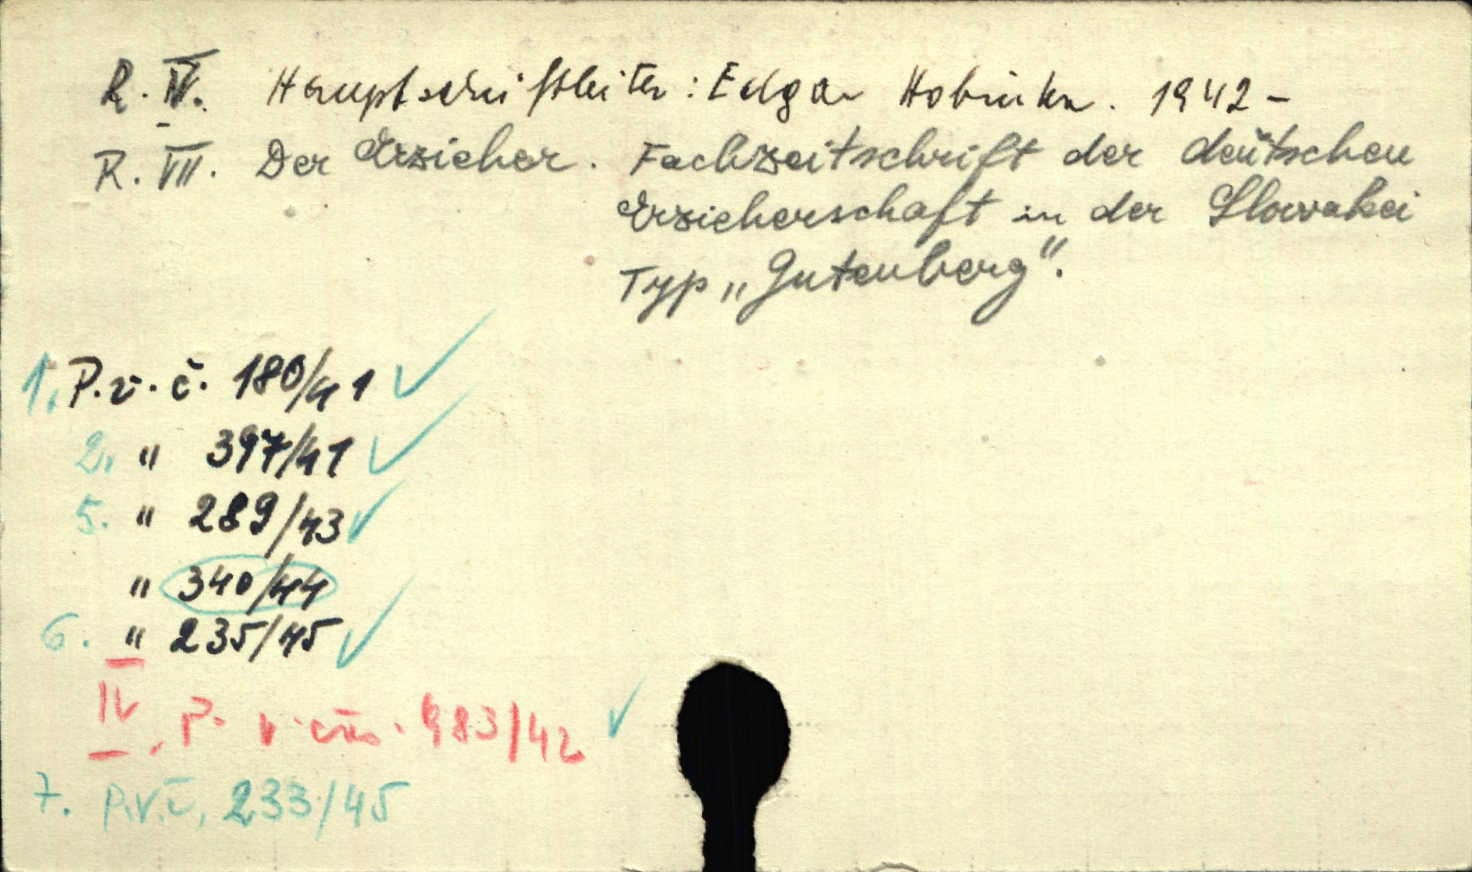 R. IV. Hauptschriftleiter: Edgar Hobinka. 1942-
R. VII. Der Erzieher. Fachzeitschrift der deutschen
Erzieherschaft in der Slowakei
Typ „Gutenberg“.
1. P.v.č. 180/41 ✓
2. " 397/41 ✓
5. " 289/43 ✓
" 340/44
6. " 235/45 ✓
IV. P. v. čís. 983/42 ✓
7. P.v.č. 233/45